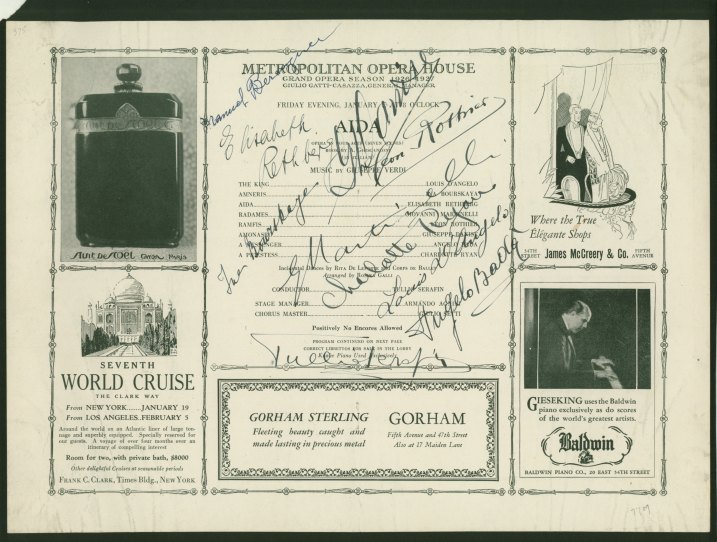 NUIT DE NOËL CARON PARIS
SEVENTH
WORLD CRUISE
THE CLARK WAY
From NEW YORK......JANUARY 19
From LOS ANGELES..FEBRUARY 5
Around the world on an Atlantic liner of large ton-
nage and superbly equipped. Specially reserved for
our guests. A voyage of over four months over an
itinerary of compelling interest
Room for two, with private bath, $8000
Other delightful Cruises at seasonable periods
FRANK C. CLARK, Times Bldg., NEW YORK
METROPOLITAN OPERA HOUSE
GRAND OPERA SEASON 1926-1927
GIULIO GATTI-CASAZZA, GENERAL MANAGER
FRIDAY EVENING, JANUARY O'CLOCK
AIDA
OPERA IN FOUR ACTS
MUSIC BY GIUSEPPE VERDI
THE KING LOUIS D'ANGELO
AMNERIS INA BOURSKAYA
AIDA ELISABETH RETHBERG
RADAMES GIOVANNI MARTINELLI
RAMFIS LEON ROTHIER
AMONASRO GIUSEPPE DANISE
A MESSENGER ANGELO BADA
A PRIESTESS CHARLOTTE RYAN
Incidental Dances by RITA DE LEPORTE and CORPS DE BALLET
Arranged by ROSINA GALLI
CONDUCTOR TULLIO SERAFIN
STAGE MANAGER ARMANDO AGNINI
CHORUS MASTER GIULIO SETTI
Positively No Encores Allowed
PROGRAM CONTINUED ON NEXT PAGE
CORRECT LIBRETTOS FOR SALE IN THE LOBBY
Knabe Piano Used Exclusively
Elisabeth
Rethberg
Danise
Leon Rothier
Ina Bourskaya
G Martinelli
Charlotte Ryan
Louis d'Angelo
Angelo Bada
Tullio Serafin
GORHAM STERLING
Fleeting beauty caught and
made lasting in precious metal
GORHAM
Fifth Avenue and 47th Street
Also at 17 Maiden Lane
Where the True
Élégante Shops
34TH STREET James McCreery & Co. FIFTH AVENUE
GIESEKING uses the Baldwin
piano exclusively as do scores
of the world's greatest artists.
Baldwin
BALDWIN PIANO CO., 20 EAST 54TH STREET